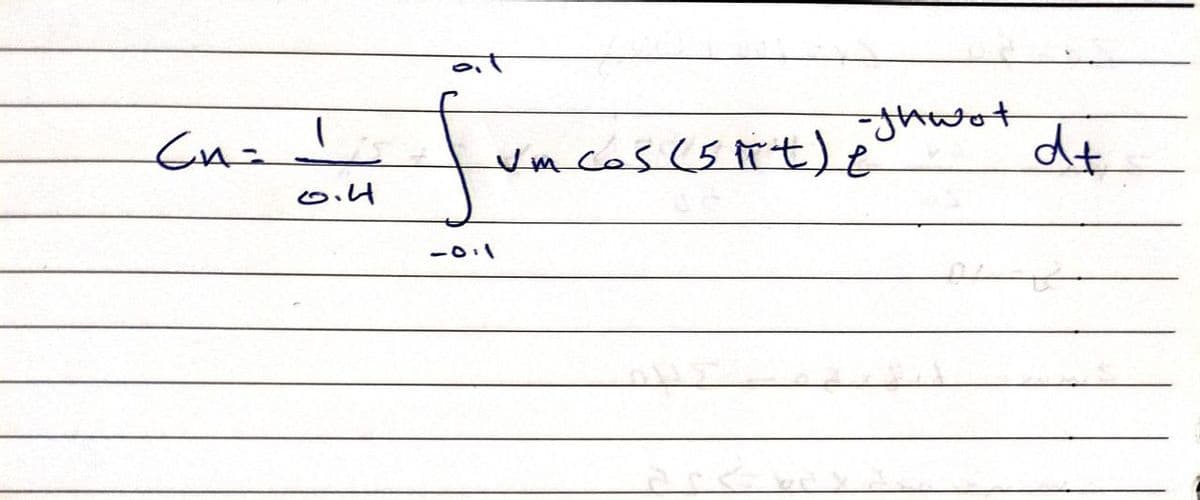 Cn = 1/0.4 ∫_{-0.1}^{0.1} Vm cos(5πt) e^{-jnwot} dt